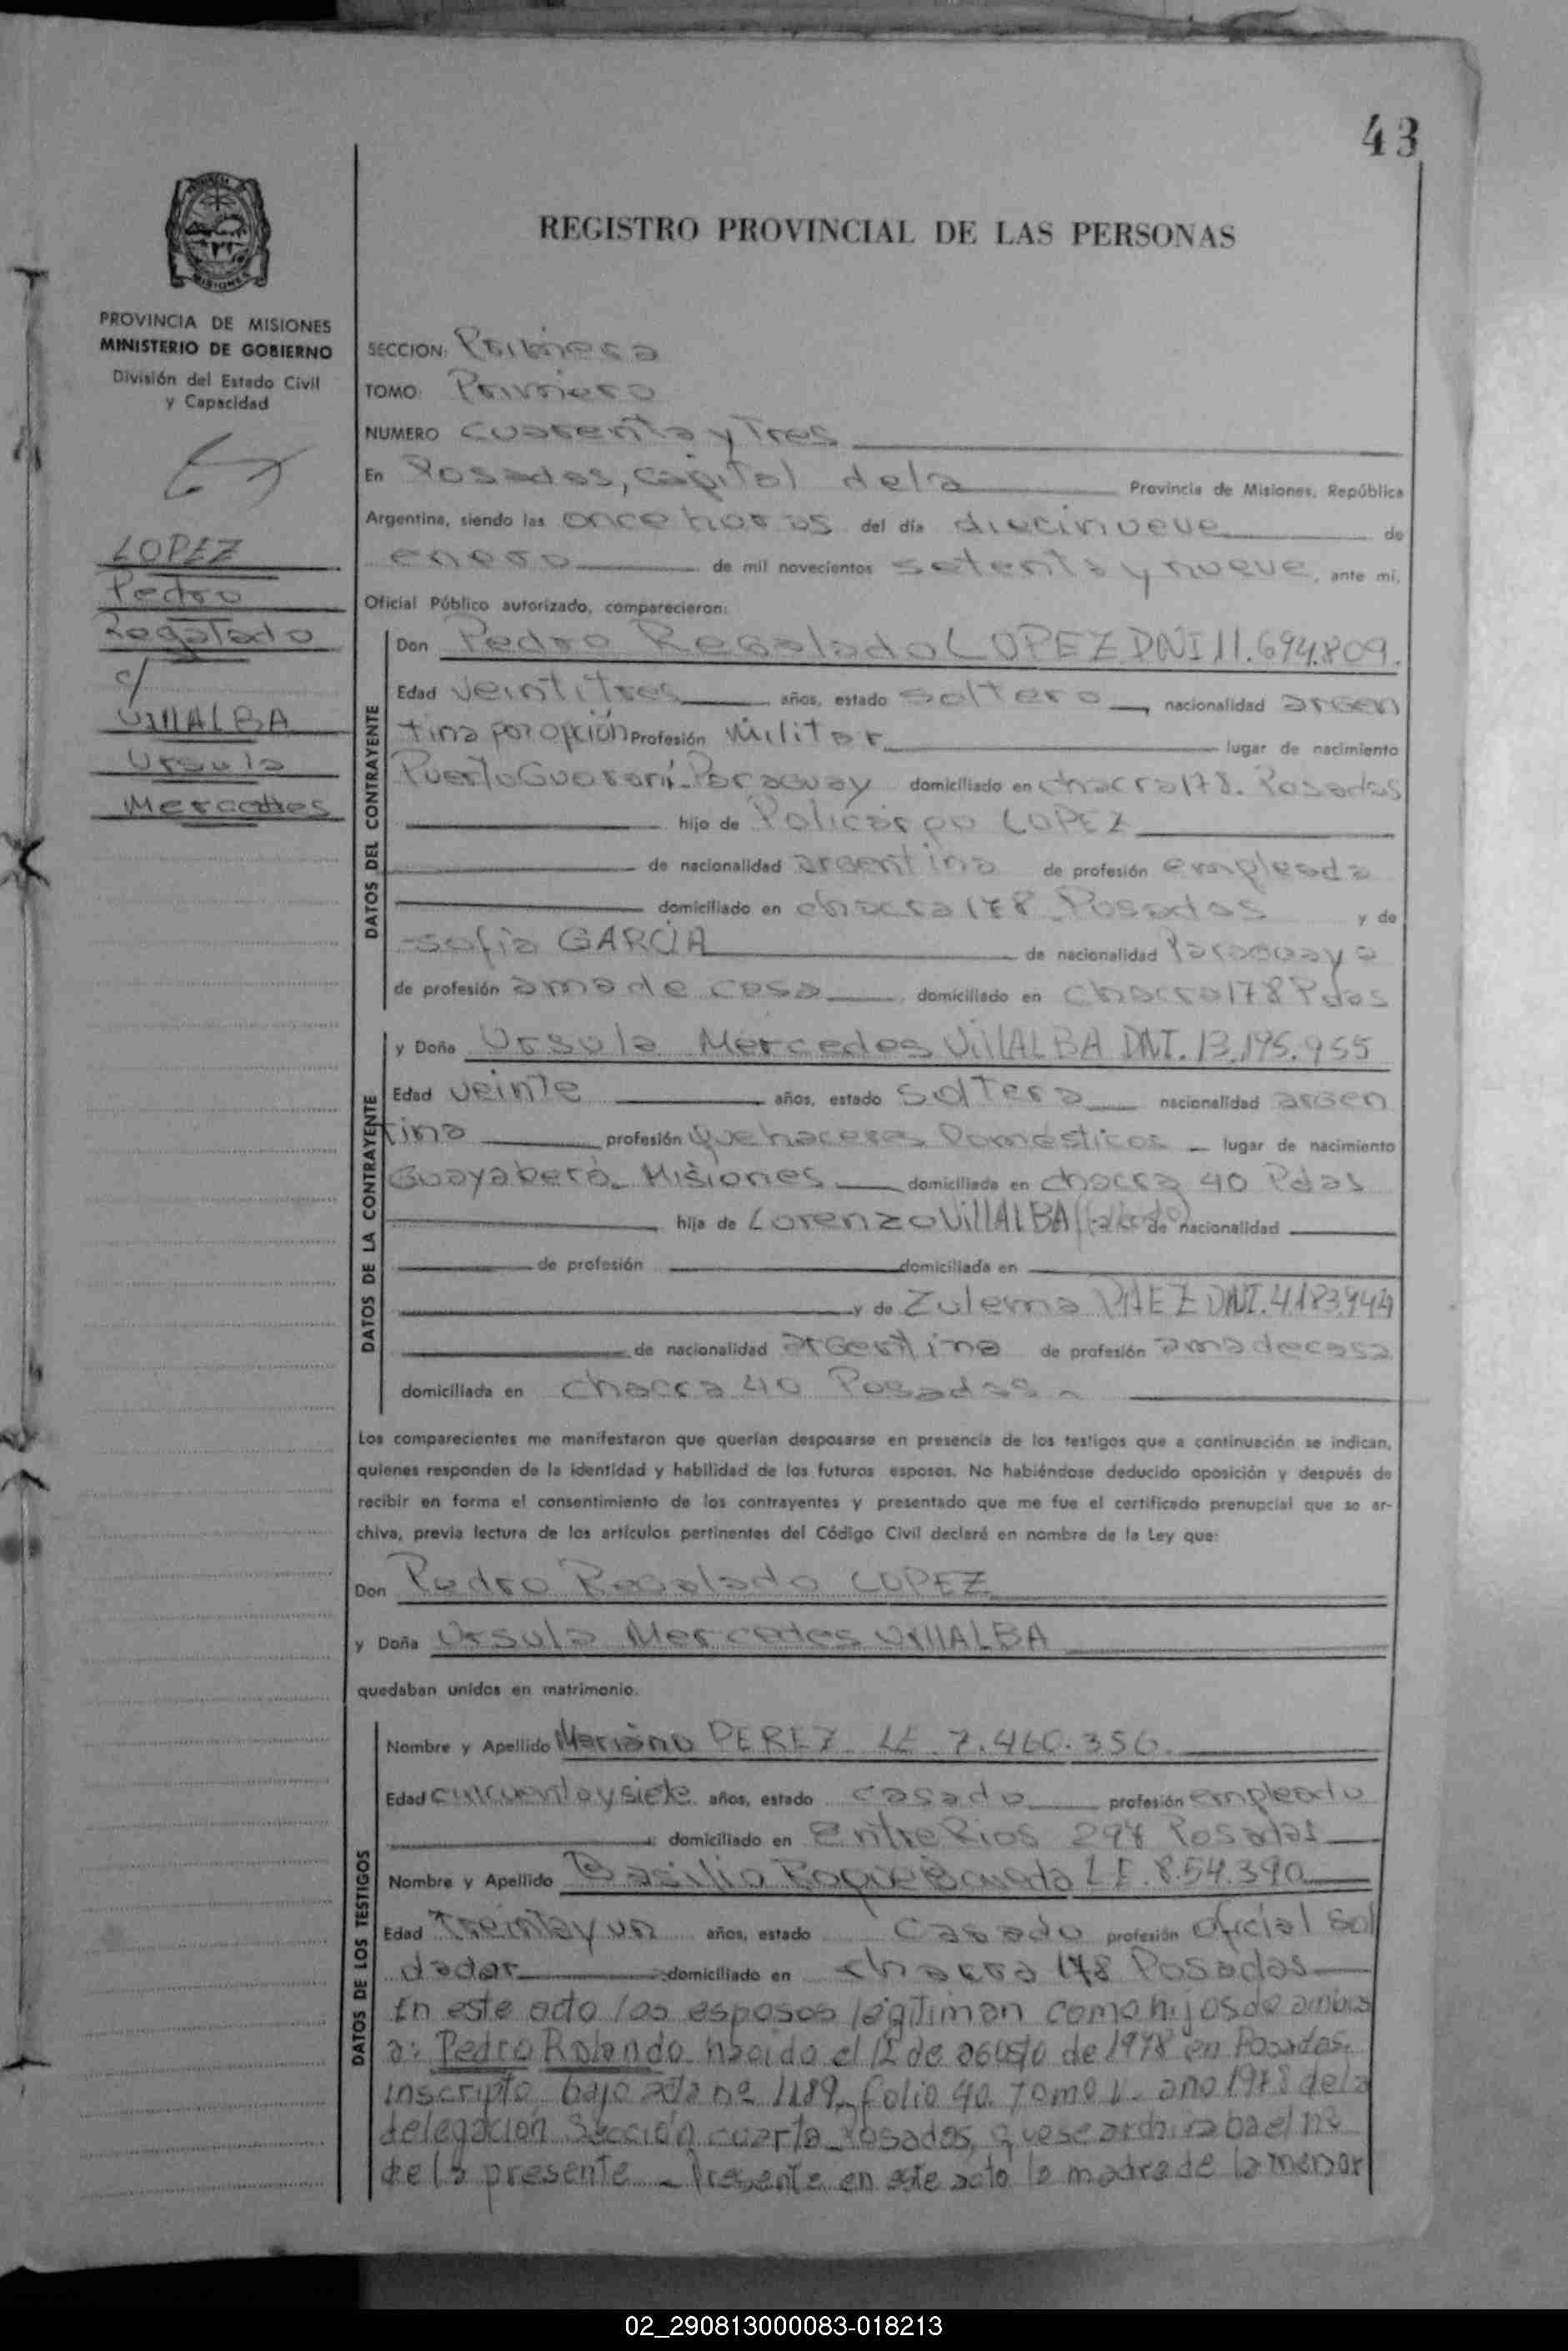 43
REGISTRO PROVINCIAL DE LAS PERSONAS
PROVINCIA DE MISIONES
MINISTERIO DE GOBIERNO
División del Estado Civil
y Capacidad
LOPEZ
Pedro
Regalado
c/
VILLALBA
Ursula
Mercedes
SECCION: Primera
TOMO: Primero
NUMERO cuarenta y Tres
En Posadas, capital de la Provincia de Misiones, República
Argentina, siendo las once horas del día diecinueve de
enero de mil novecientos setenta y nueve, ante mí,
Oficial Público autorizado, comparecieron:
DATOS DEL CONTRAYENTE
Don Pedro Regalado LOPEZ DNI 11.694.809.
Edad veintitres años, estado soltero, nacionalidad argen
tina por opción Profesión Militar lugar de nacimiento
Puerto Guaraní-Paraguay domiciliado en chacra 178. Posadas
hijo de Policarpo LOPEZ
de nacionalidad argentina de profesión empleada
domiciliado en chacra 178 Posadas y de
Sofia GARCIA de nacionalidad Paraguaya
de profesión ama de casa domiciliado en chacra 178 Pdas
DATOS DE LA CONTRAYENTE
y Doña Ursula Mercedes VillALBA DNI. 13.195.955
Edad veinte años, estado soltera nacionalidad argen
tina profesión Quehaceres Domésticos lugar de nacimiento
Guayabera. Misiones domiciliada en chacra 40 Pdas
hija de Lorenzo VillALBA de nacionalidad
de profesión domiciliada en
y de Zulema PAEZ DNI. 4.183.944
de nacionalidad argentina de profesión ama de casa
domiciliada en chacra 40 Posadas
Los comparecientes me manifestaron que querían desposarse en presencia de los testigos que a continuación se indican,
quienes responden de la identidad y habilidad de los futuros esposos. No habiéndose deducido oposición y después de
recibir en forma el consentimiento de los contrayentes y presentado que me fue el certificado prenupcial que se ar-
chiva, previa lectura de los artículos pertinentes del Código Civil declaré en nombre de la Ley que:
Don Pedro Regalado LOPEZ
y Doña Ursula Mercedes VillALBA
quedaban unidos en matrimonio.
DATOS DE LOS TESTIGOS
Nombre y Apellido Mariano PEREZ LE 7.460.356.
Edad cincuenta y siete años, estado casado profesión empleado
domiciliado en Entre Rios 298 Posadas
Nombre y Apellido Basilio Roque L.E. 8.54.390
Edad Treinta y un años, estado casado profesión oficial sol
dador domiciliado en chacra 178 Posadas
En este acto los esposos legitiman como hijos de ambos
a: Pedro Rolando nacido el 12 de agosto de 1978 en Posadas,
inscripto bajo acta nº 1189, folio 40. Tomo V. año 1978 de la
delegación Sección cuarta Posadas, que se archiva ba el nº
de la presente - Presente en este acto la madre de la menor
02_290813000083-018213